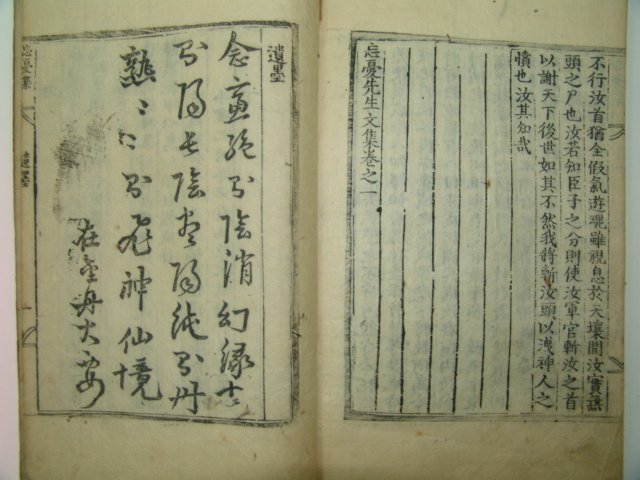 不行汝首猶全假氣遊魂雖視息於天壤間汝實無
頭之尸也汝若知臣子之分則使汝軍官斬汝之首
以謝天下後世如其不然我將斬汝頭以洩神人之
憤也汝其知哉
忘憂先生文集卷之一
遺墨
念慮絶兮陰消幻緣去
兮陽長陰盡陽純兮丹
熟〻〻兮飛神仙境
在金丹大要
忘憂集 遺墨 一